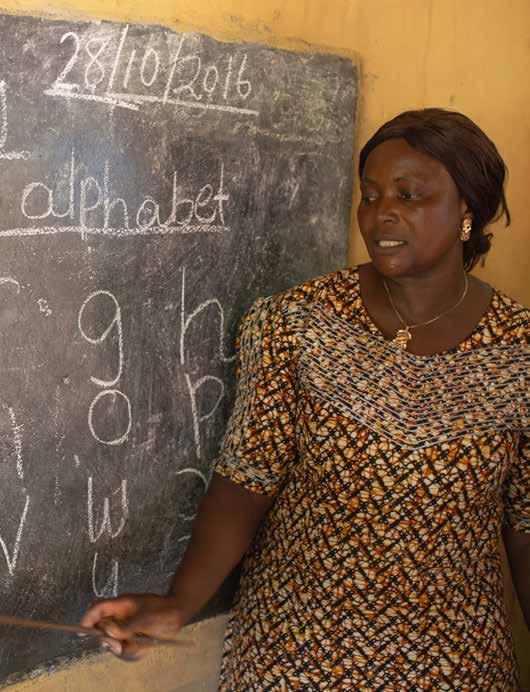 28/10/2016
alphabet
g h
o p
v w
y